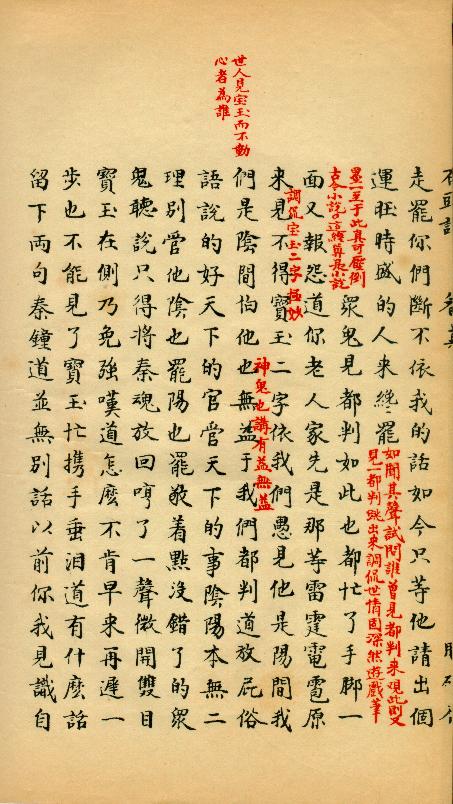 走罷你們斷不依我的話如今只等他請出個
運旺時盛的人來終罷
如聞其聲試問誰曾見都判来觀此則又
見一都判跳出來調侃世情固深然遊戲筆
墨一至于此真可壓倒
古今小說这纔算是小說
眾鬼見都判如此也都忙了手脚一
面又報怨道你老人家先是那等雷霆電雹原
調侃宝玉二字極妙
來見不得寶玉二字依我們愚見他是陽間我
世人見宝玉而不動
心者為誰
們是陰間怕他也無益于我們都判道放屁俗
神鬼也講有益無益
語說的好天下的官管天下的事陰陽本無二
理別管他陰也罷陽也罷敬着點沒錯了的眾
鬼聽說只得將秦魂放回哼了一聲微開雙目
寶玉在側乃免強嘆道怎麽不肯早来再遲一
步也不能見了寶玉忙携手垂泪道有什麽話
留下兩句秦鐘道並無別話以前你我見識自